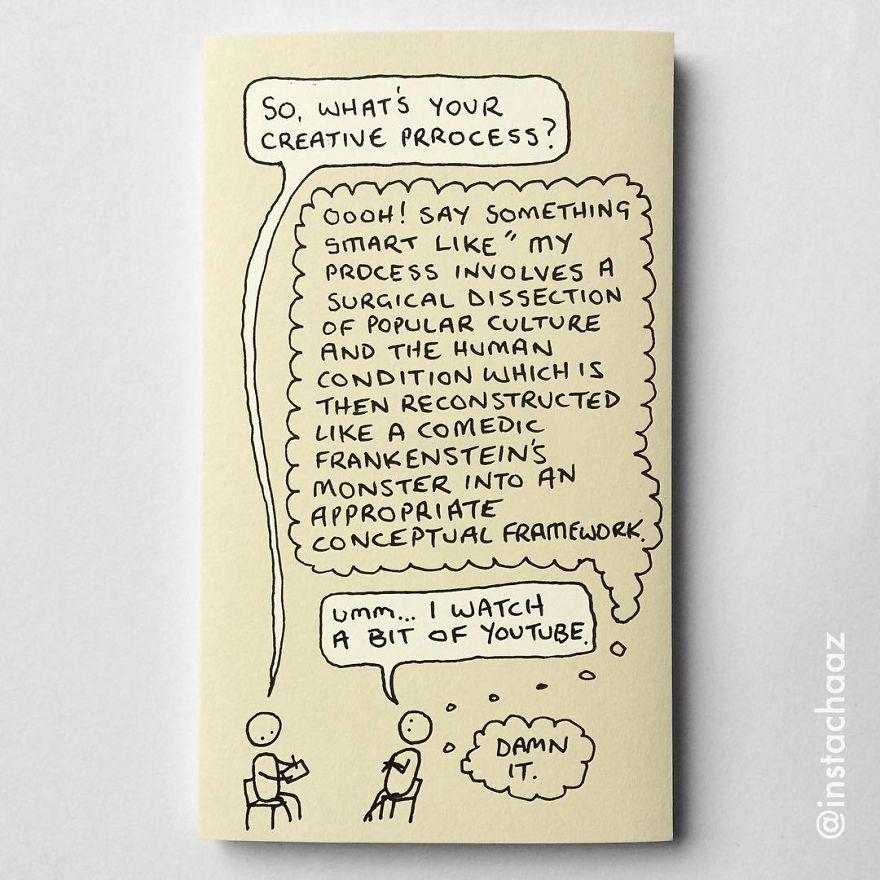 SO, WHAT'S YOUR
CREATIVE PRROCESS?
OOOH! SAY SOMETHING
SMART LIKE " MY
PROCESS INVOLVES A
SURGICAL DISSECTION
OF POPULAR CULTURE
AND THE HUMAN
CONDITION WHICH IS
THEN RECONSTRUCTED
LIKE A COMEDIC
FRANKENSTEIN'S
MONSTER INTO AN
APPROPRIATE
CONCEPTUAL FRAMEWORK.
UMM... I WATCH
A BIT OF YOUTUBE.
DAMN
IT.
@instachaaz